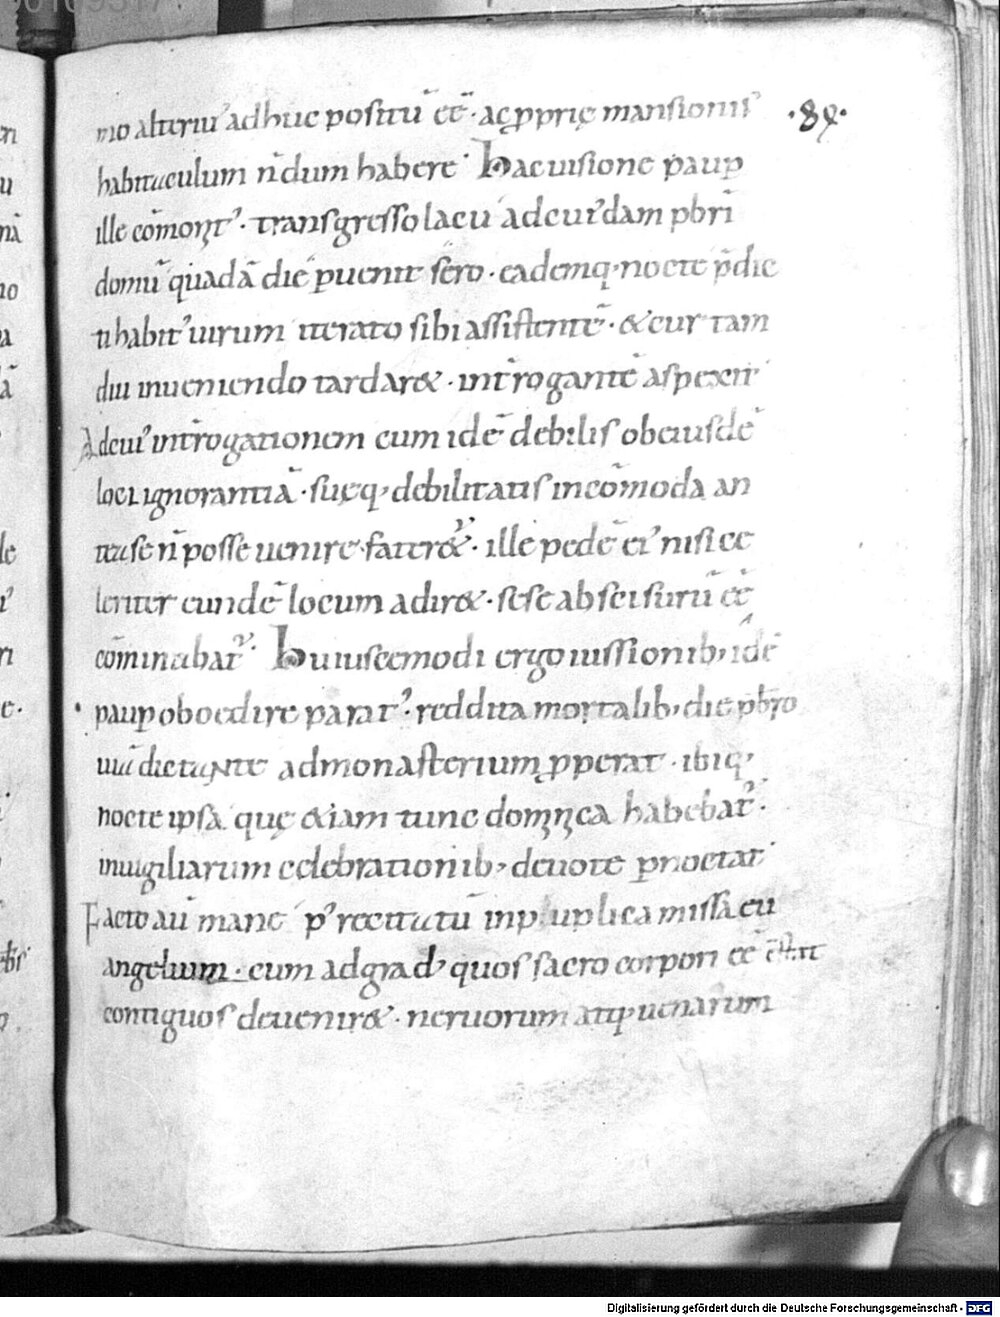 mo alteriu᾽ adhuc positū eē· ac ꝓprię mansionis ·89·
habitaculum n̄dum habere· hac uisione paup̱
ille cōmonit᾽· transgresso lacu ad cui᾽dam pb̄ri
domū quadā die ꝑuenit sero· eademq· nocte p̄dic
ti habit᾽ uirum iterato sibi assistentē· & cur tam
diu inueniendo tardar&· int̄rogantē aspexit·
Adcui᾽ int̄rogationem cum idē debilis ob eiusdē
loci ignorantiā· suęq, debilitatis incōmoda an
tea se n̄ posse uenire fater&᾽· ille pedē ei᾽ nisi ce
leriter eundē locum adir&· sese abscisurū eē
cōminabat᾽· huiuscemodi ergo iussionib, idē
paup̱ oboedire parat᾽· reddita mortalib, die pb̄ro
uiā dictante ad monasterium ꝓperat· ibiq᾽
nocte ipsa quę &iam tunc dominica habebat᾽·
inuigiliarum celebrationib, deuote p̱noctat·
Facto aū mane p᾽ recitatū in publica missa eu
angelium· cum ad grad᾽ quos sacro corpori eē
contiguos deuenir&· neruorum atq, uenarum
Digitalisierung gefördert durch die Deutsche Forschungsgemeinschaft - DFG